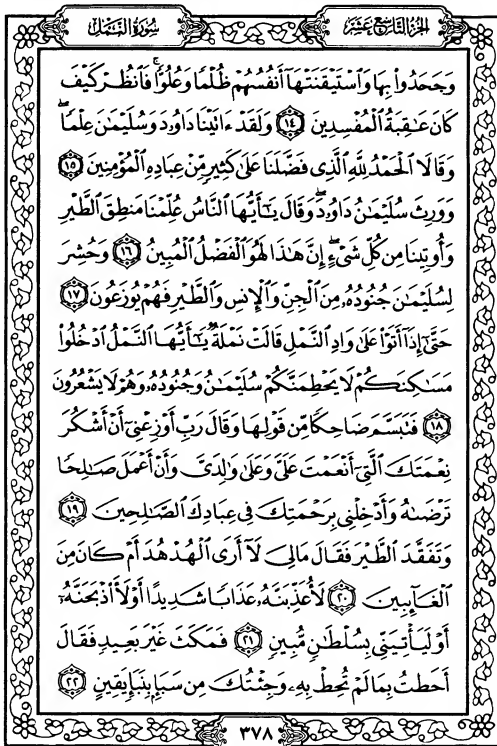 سُورَةُ النَّمْلِ الجُزْءُ التَّاسِعَ عَشَرَ
وَجَحَدُوا۟ بِهَا وَٱسْتَيْقَنَتْهَآ أَنفُسُهُمْ ظُلْمًا وَعُلُوًّا ۚ فَٱنظُرْ كَيْفَ
كَانَ عَٰقِبَةُ ٱلْمُفْسِدِينَ ١٤ وَلَقَدْ ءَاتَيْنَا دَاوُۥدَ وَسُلَيْمَٰنَ عِلْمًا ۖ
وَقَالَا ٱلْحَمْدُ لِلَّهِ ٱلَّذِى فَضَّلَنَا عَلَىٰ كَثِيرٍ مِّنْ عِبَادِهِ ٱلْمُؤْمِنِينَ ١٥
وَوَرِثَ سُلَيْمَٰنُ دَاوُۥدَ ۖ وَقَالَ يَٰٓأَيُّهَا ٱلنَّاسُ عُلِّمْنَا مَنطِقَ ٱلطَّيْرِ
وَأُوتِينَا مِن كُلِّ شَىْءٍ ۖ إِنَّ هَٰذَا لَهُوَ ٱلْفَضْلُ ٱلْمُبِينُ ١٦ وَحُشِرَ
لِسُلَيْمَٰنَ جُنُودُهُۥ مِنَ ٱلْجِنِّ وَٱلْإِنسِ وَٱلطَّيْرِ فَهُمْ يُوزَعُونَ ١٧
حَتَّىٰٓ إِذَآ أَتَوْا۟ عَلَىٰ وَادِ ٱلنَّمْلِ قَالَتْ نَمْلَةٌ يَٰٓأَيُّهَا ٱلنَّمْلُ ٱدْخُلُوا۟
مَسَٰكِنَكُمْ لَا يَحْطِمَنَّكُمْ سُلَيْمَٰنُ وَجُنُودُهُۥ وَهُمْ لَا يَشْعُرُونَ
١٨ فَتَبَسَّمَ ضَاحِكًا مِّن قَوْلِهَا وَقَالَ رَبِّ أَوْزِعْنِىٓ أَنْ أَشْكُرَ
نِعْمَتَكَ ٱلَّتِىٓ أَنْعَمْتَ عَلَىَّ وَعَلَىٰ وَٰلِدَىَّ وَأَنْ أَعْمَلَ صَٰلِحًا
تَرْضَىٰهُ وَأَدْخِلْنِى بِرَحْمَتِكَ فِى عِبَادِكَ ٱلصَّٰلِحِينَ ١٩
وَتَفَقَّدَ ٱلطَّيْرَ فَقَالَ مَالِىَ لَآ أَرَى ٱلْهُدْهُدَ أَمْ كَانَ مِنَ
ٱلْغَآئِبِينَ ٢٠ لَأُعَذِّبَنَّهُۥ عَذَابًا شَدِيدًا أَوْ لَأَا۟ذْبَحَنَّهُۥٓ
أَوْ لَيَأْتِيَنِّى بِسُلْطَٰنٍ مُّبِينٍ ٢١ فَمَكَثَ غَيْرَ بَعِيدٍ فَقَالَ
أَحَطتُ بِمَا لَمْ تُحِطْ بِهِۦ وَجِئْتُكَ مِن سَبَإٍۭ بِنَبَإٍ يَقِينٍ ٢٢
٣٧٨